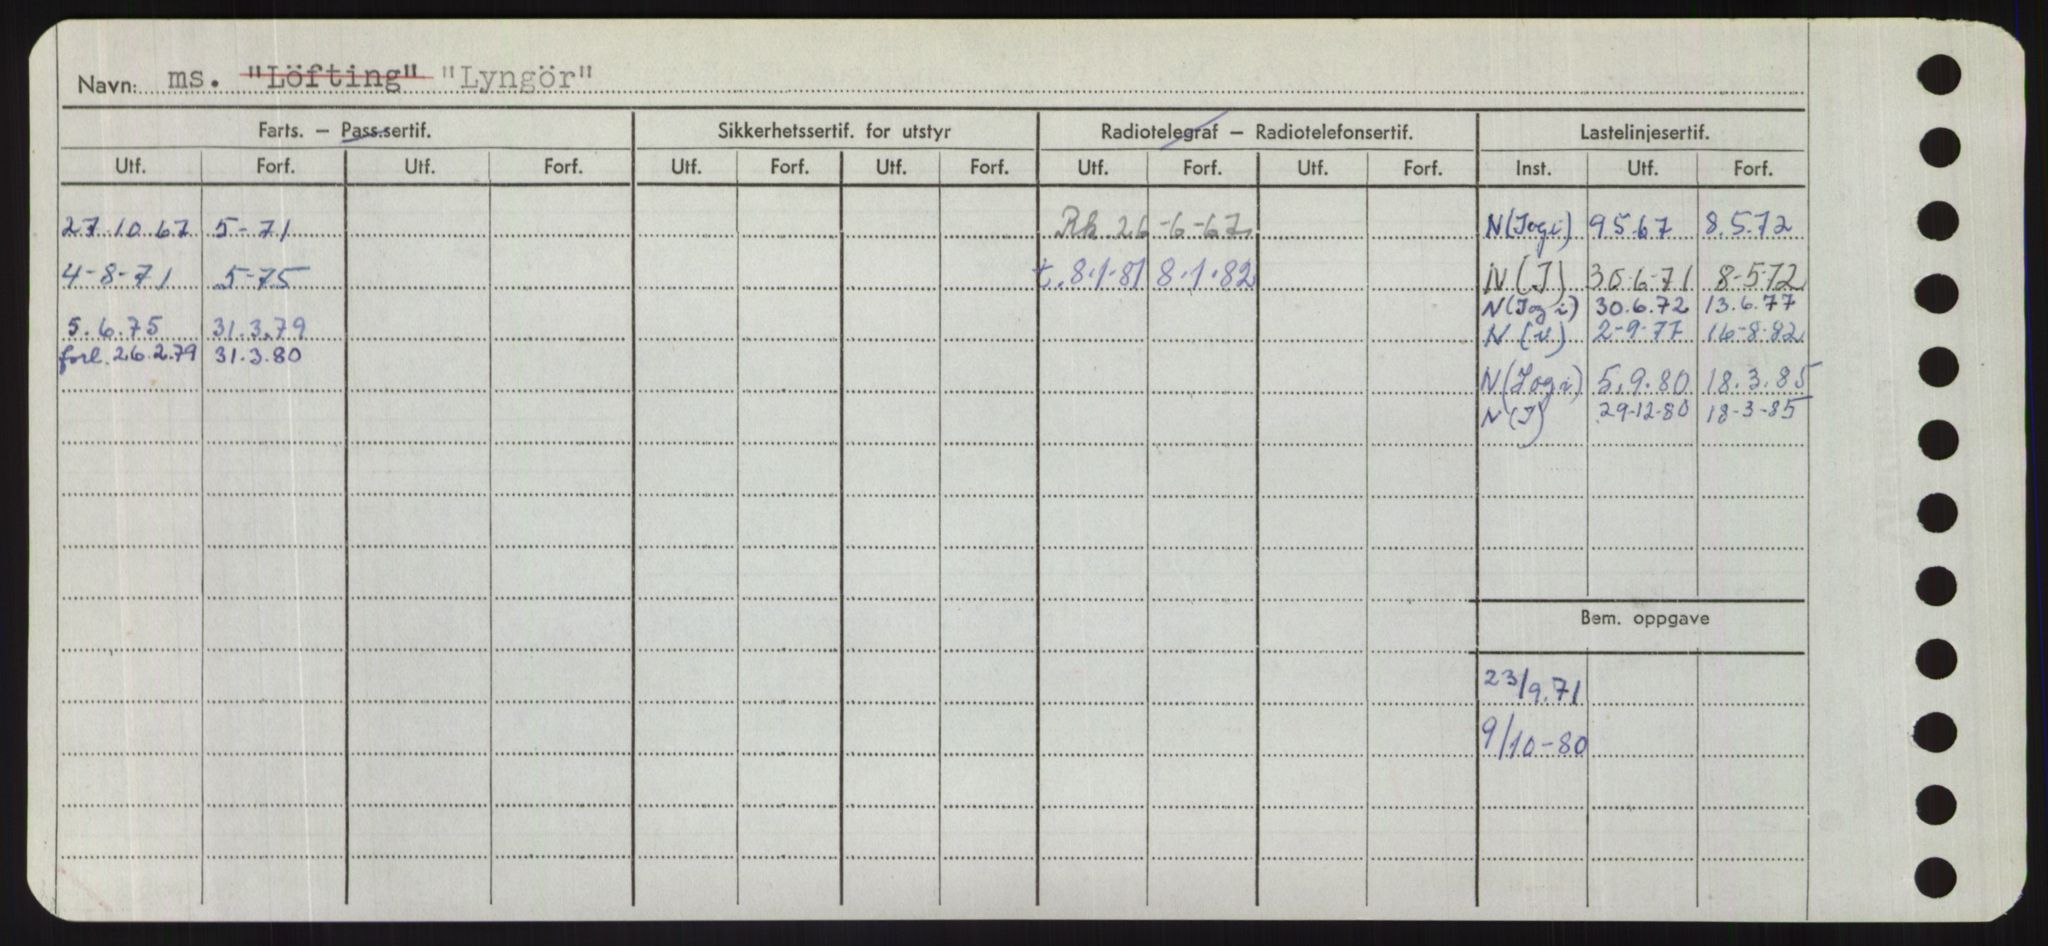 Navn: ms. "Löfting" "Lyngör"
Farts. — Pass.sertif. Sikkerhetssertif. for utstyr Radiotelegraf — Radiotelefonsertif. Lastelinjesertif.
Utf. Forf. Utf. Forf. Utf. Forf. Utf. Forf. Utf. Forf. Utf. Forf. Inst. Utf. Forf.
27.10.67 5-71 Rk 26-6-67 N(Iogi) 9567 8.5.72
4-8-71 5-75 t. 8.1.81 8.1.82 N(I) 30.6.71 8-5-72
N(Iogi) 30.6.72 13.6.77
5.6.75 31.3.79 N 2-9-77 16-8-82
forl. 26.2.79 31.3.80
N(Iogi) 5.9.80 18.3.85
N(I) 29-12-80 18-3-85
Bem. oppgave
23/9.71
9/10-80